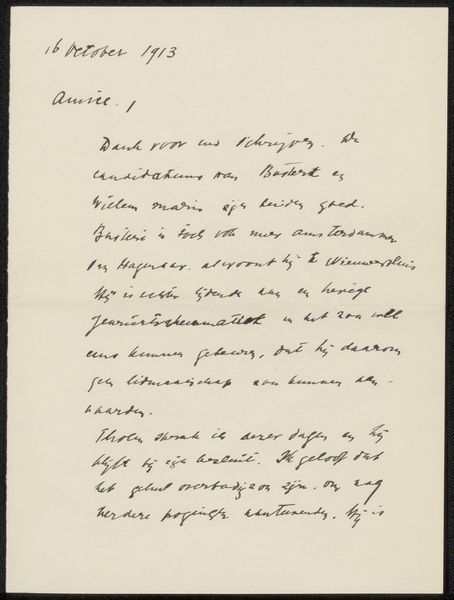 16 October 1913
Amice,
Dank voor uw schrijven. De
candidaturen van Bastert en
Willem Maris zijn beiden goed.
Bastert is toch ook meer Amsterdammer
dan Hagenaar. al woont hij te Nieuwersluis
Hij is echter lijdende aan een hevige
gewrichtsrheumatiek en het zou wel
eens kunnen gebeuren, dat hij daarom
geen lidmaatschap zou kunnen aan-
vaarden.
Tholen sprak ik dezer dagen en hij
blijft bij zijn besluit. Ik geloof dat
het geheel overbodig zou zijn. om nog
verdere pogingen aan te wenden. Hij is